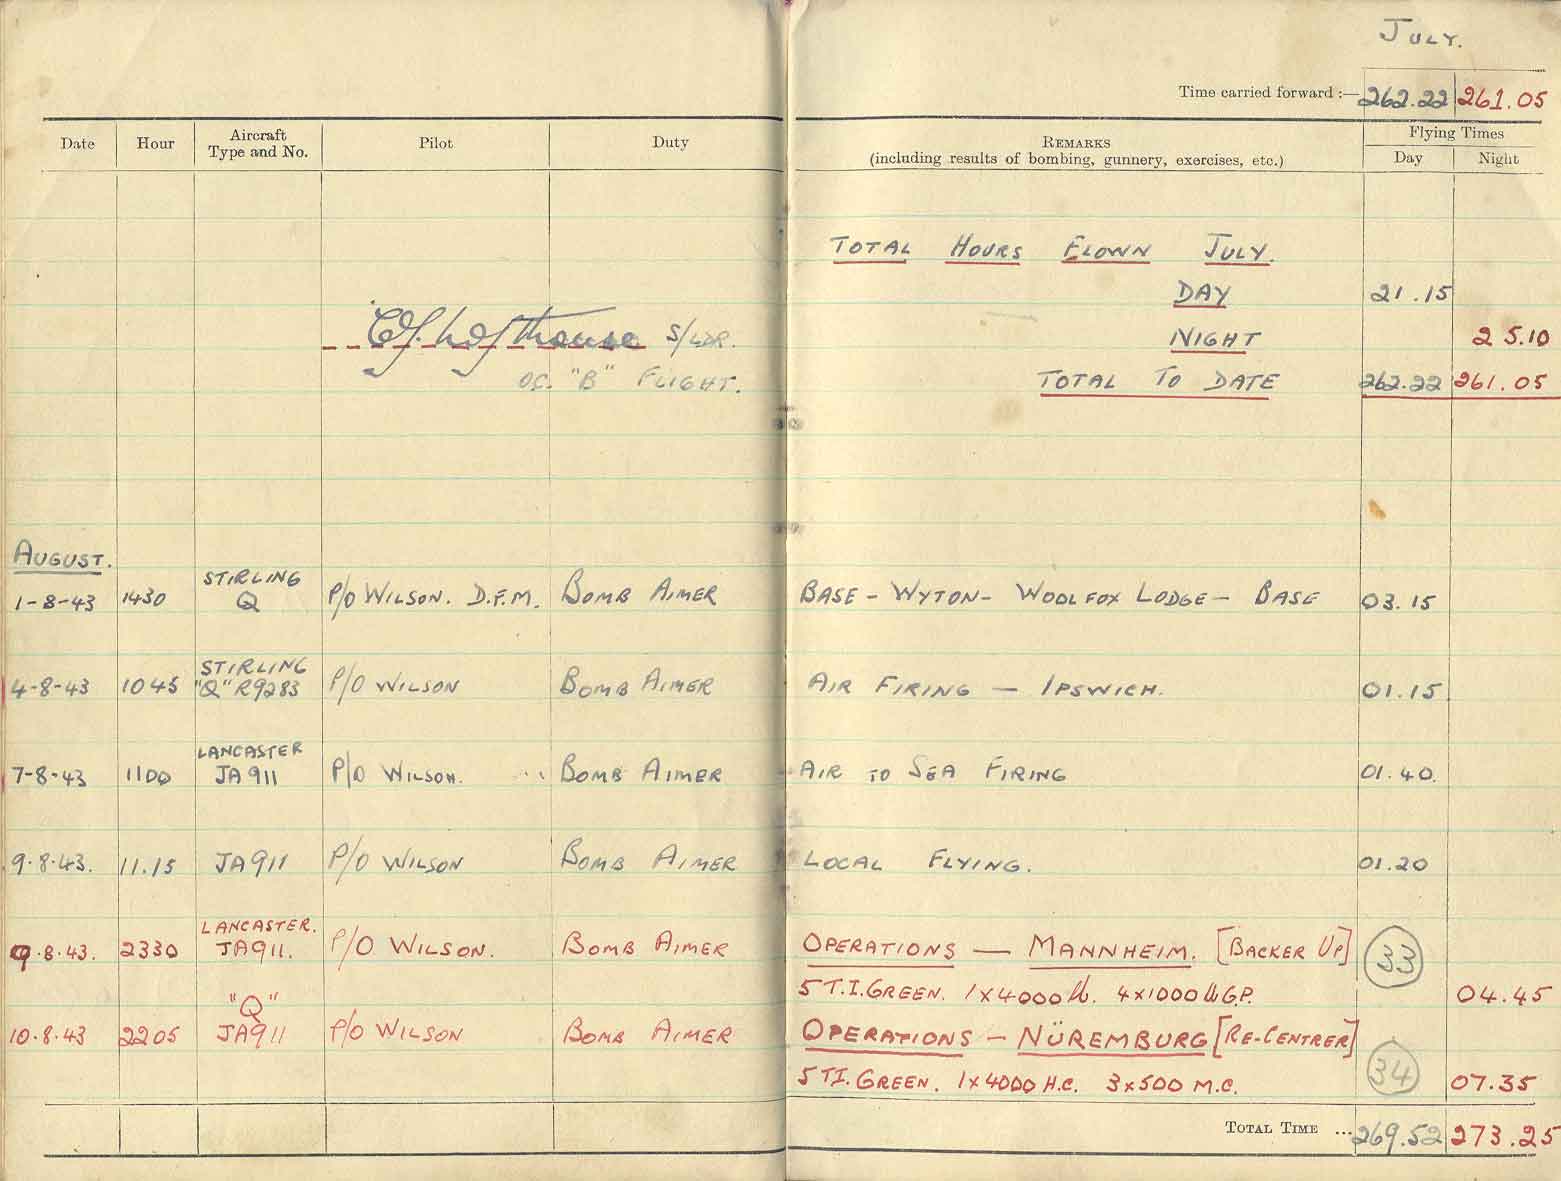 JULY.
Time carried forward :— 262.22 261.05
Date Hour Aircraft Type and No. Pilot Duty REMARKS (including results of bombing, gunnery, exercises, etc.) Flying Times Day Night
TOTAL HOURS FLOWN JULY.
DAY 21.15
S/LDR. NIGHT 25.10
O.C. "B" FLIGHT. TOTAL TO DATE 262.22 261.05
AUGUST.
STIRLING
1-8-43 1430 Q P/O WILSON. D.F.M. BOMB AIMER BASE - WYTON - WOOLFOX LODGE - BASE 03.15
STIRLING
4-8-43 1045 "Q" R9283 P/O WILSON BOMB AIMER AIR FIRING — IPSWICH. 01.15
LANCASTER
7-8-43 1100 JA911 P/O WILSON. BOMB AIMER AIR TO SEA FIRING 01.40.
9.8.43. 11.15 JA911 P/O WILSON BOMB AIMER LOCAL FLYING. 01.20
LANCASTER.
9.8.43. 2330 JA911. P/O WILSON. BOMB AIMER OPERATIONS — MANNHEIM. [BACKER UP] 33
5 T.I. GREEN. 1x4000 lb. 4x1000 lb G.P. 04.45
"Q"
10.8.43 2205 JA911 P/O WILSON BOMB AIMER OPERATIONS - NÜREMBURG [RE-CENTRER]
5 T.I. GREEN. 1x4000 H.C. 3x500 M.C. 34 07.35
TOTAL TIME ... 269.52 273.25